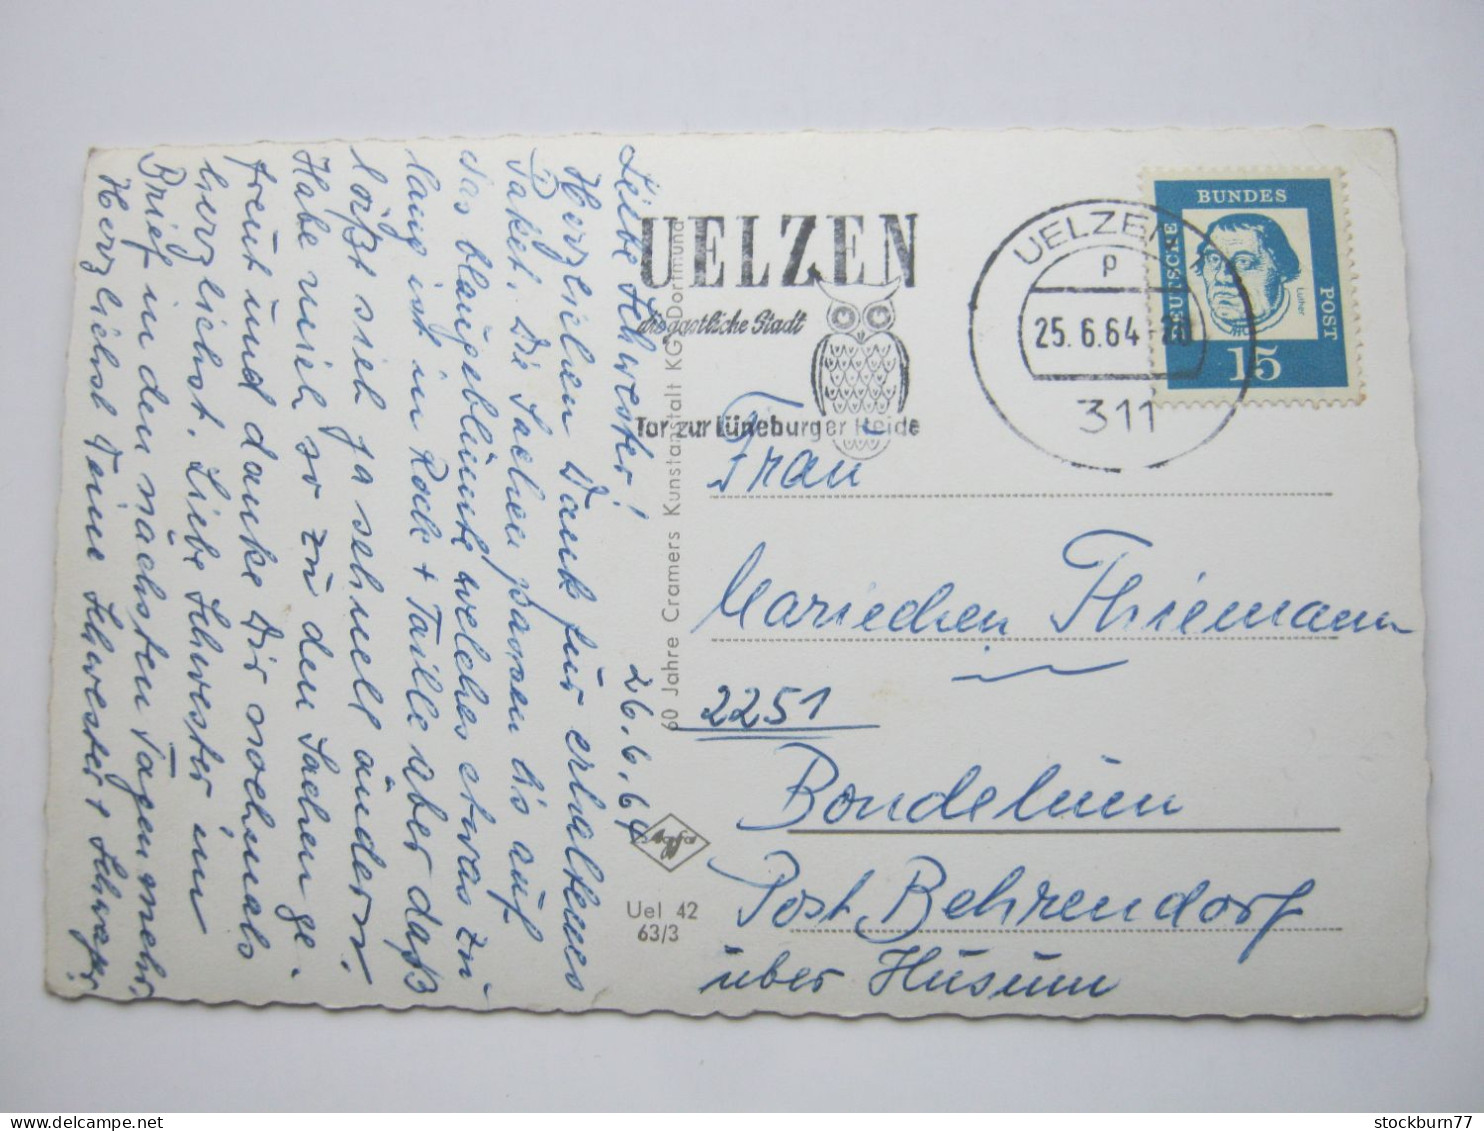 Liebe Schwester! 26.6.64
Herzlichen Dank für erhaltenes
Paket. Die Sachen passen bis auf
das blaugeblümte welches etwas zu
lang ist in Rock + Taille aber daß
läßt sich ja schnell ändern.
Habe mich so zu den Sachen ge-
freut und danke Dir nochmals
herzlichst. Liebe Schwester im
Brief in den nächsten Tagen mehr.
Herzlichst Deine Schwester + Schwager.
UELZEN
die gastliche Stadt
Tor zur Lüneburger Heide
UELZEN 1
p
25.6.64-20
311
BUNDES
DEUTSCHE
POST
Luther
15
60 Jahre Cramers Kunstanstalt KG, Dortmund
Agfa
Uel 42
63/3
Frau
Mariechen Thiemann
2251
Bondelum
Post Behrendorf
über Husum
stockburn77